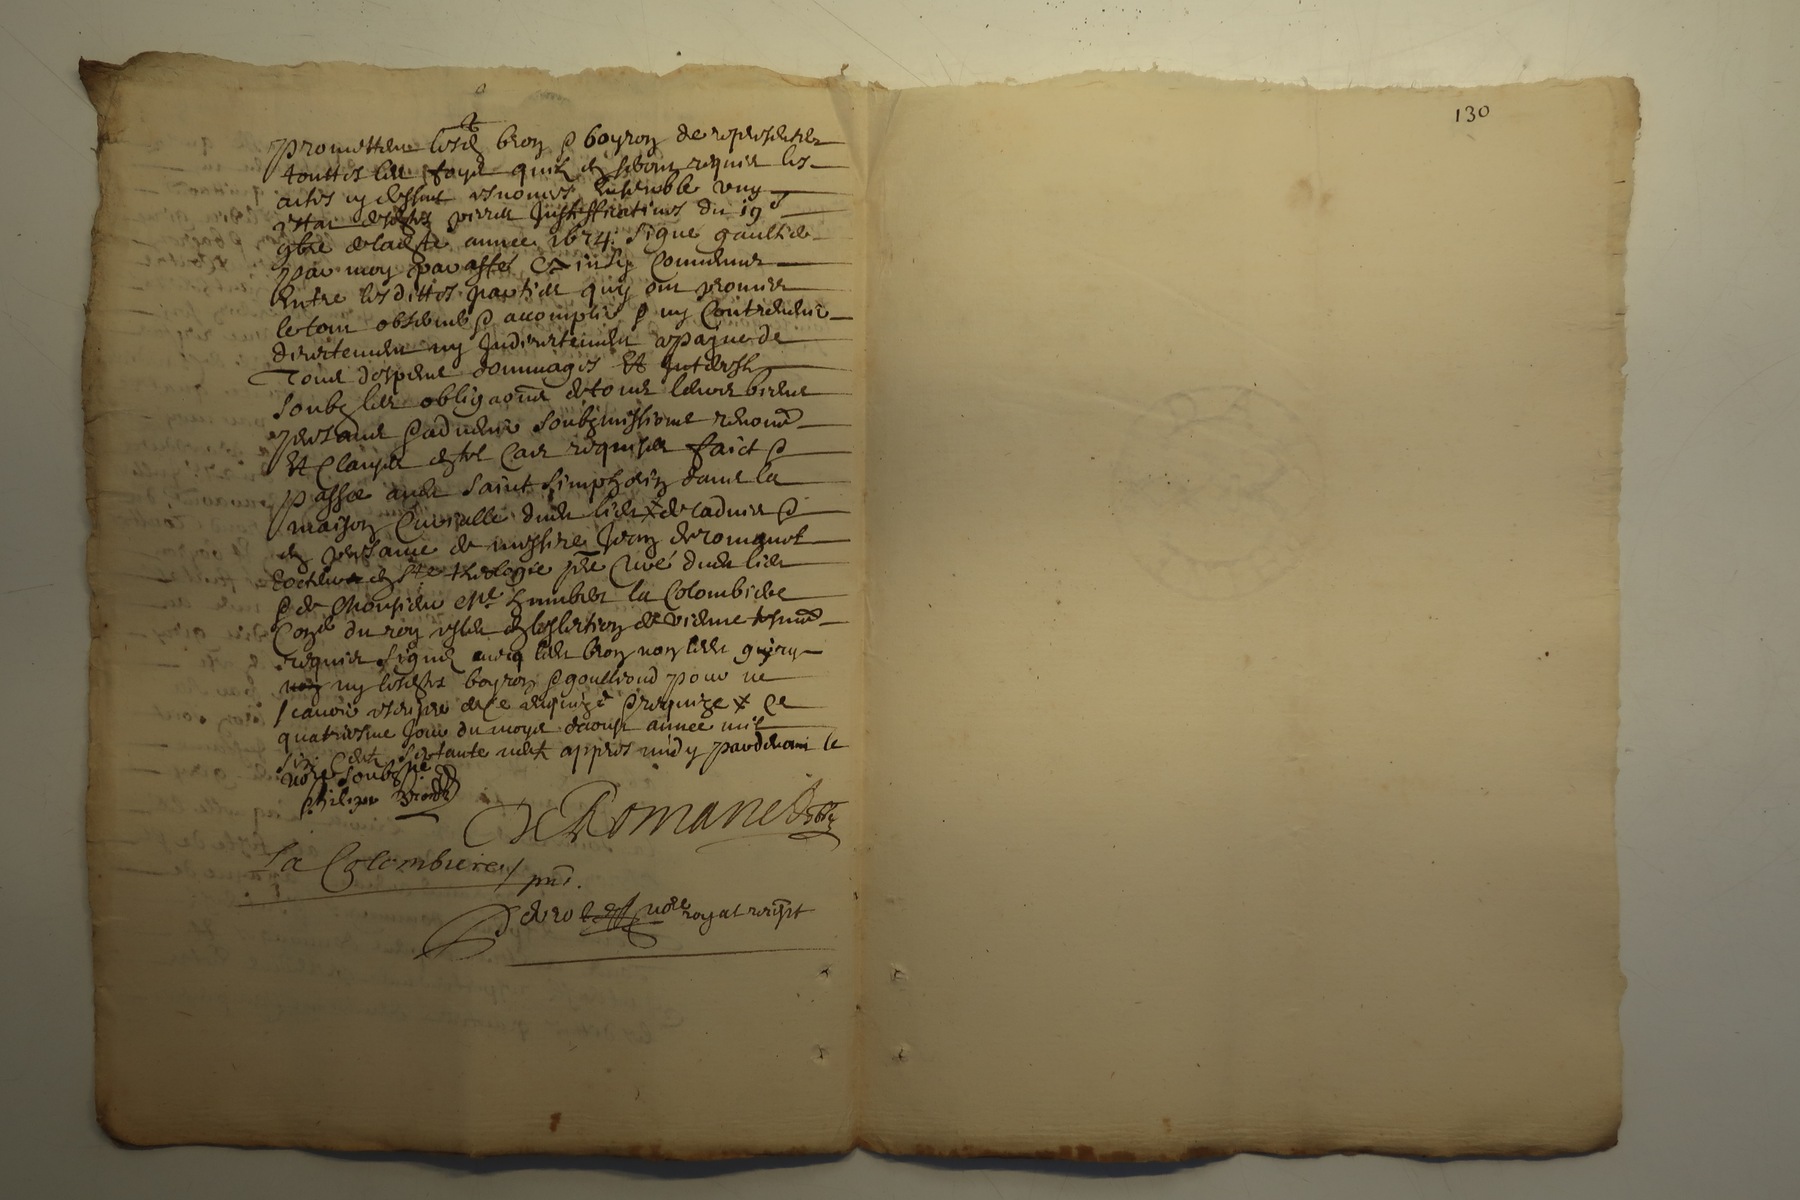 promettens lesd bron & boyron de representer
touttes les foys quilz en seront requis les
actes cy dessus enoncés ensemble ung
estat desdites pieces justifficatives du 19e
9bre de ladte année 1674 signé gaultier
par moy par
entre lesdittes parties quy ont promis
le tout observer & accomplir & ny contrevenir
directement ny indirectement a payne de
tous despens dommages et interestz
soubz les obligaons de tous leurs biens
presans & advenir soubzmissions renon
et clauses en tel cas requises faict &
passé aud saint simphorien dans la
maison curialle dud lieu &
en presance de messire jean de romanet
docteur en ste theologie pre curé dud lieu
& de monsieur Me humbert la Colombiere
Coner du roy esleu en leslection de vienne tesmoins
requis signés avec led bron non led
ny lesdits boyron & pour ne
scavoir escripre de ce enquis & requis & ce
quatriesme jour du moys daoust année mil
six centz septante neuf appres midy pardevant le
nore soubzne
De Romanet
La Colombiere / pnt.
nore royal
130